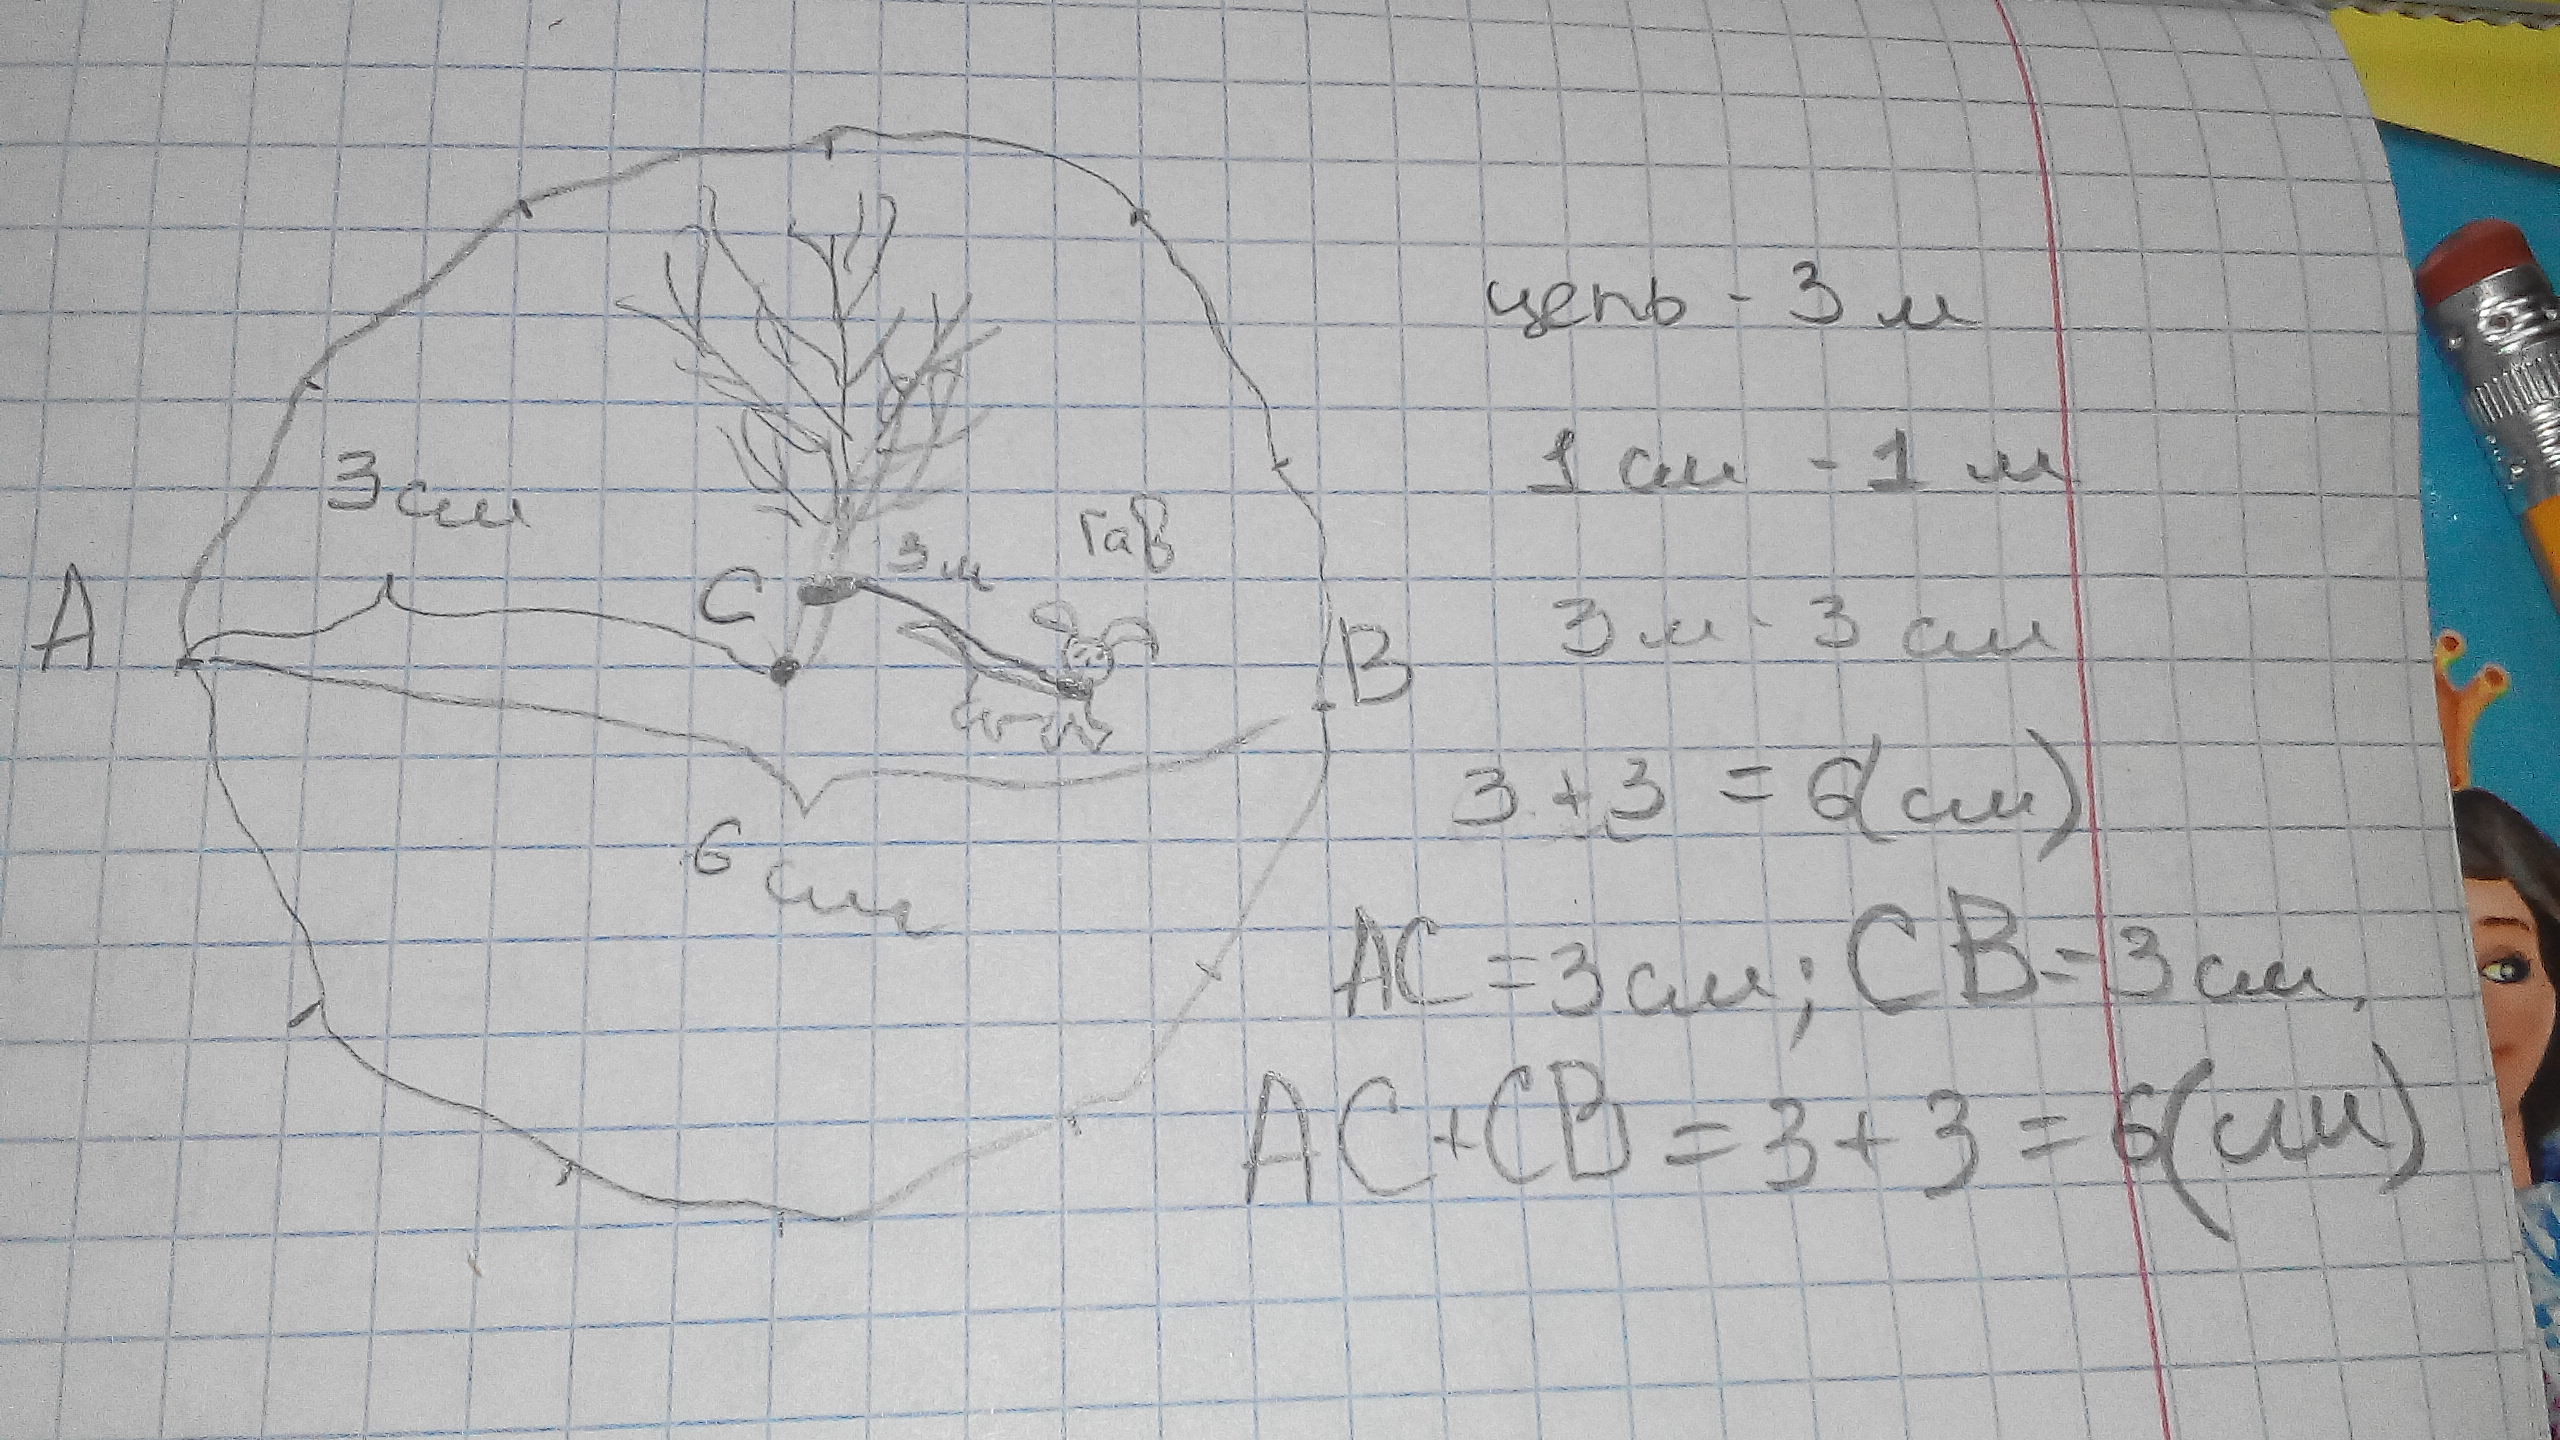 цепь - 3 м
1 см - 1 м
3 см
Гав
3 м
А
С
3 м - 3 см
В
3 + 3 = 6(см)
6 см
АС = 3 см; СВ = 3 см,
АС+СВ = 3 + 3 = 6(см)